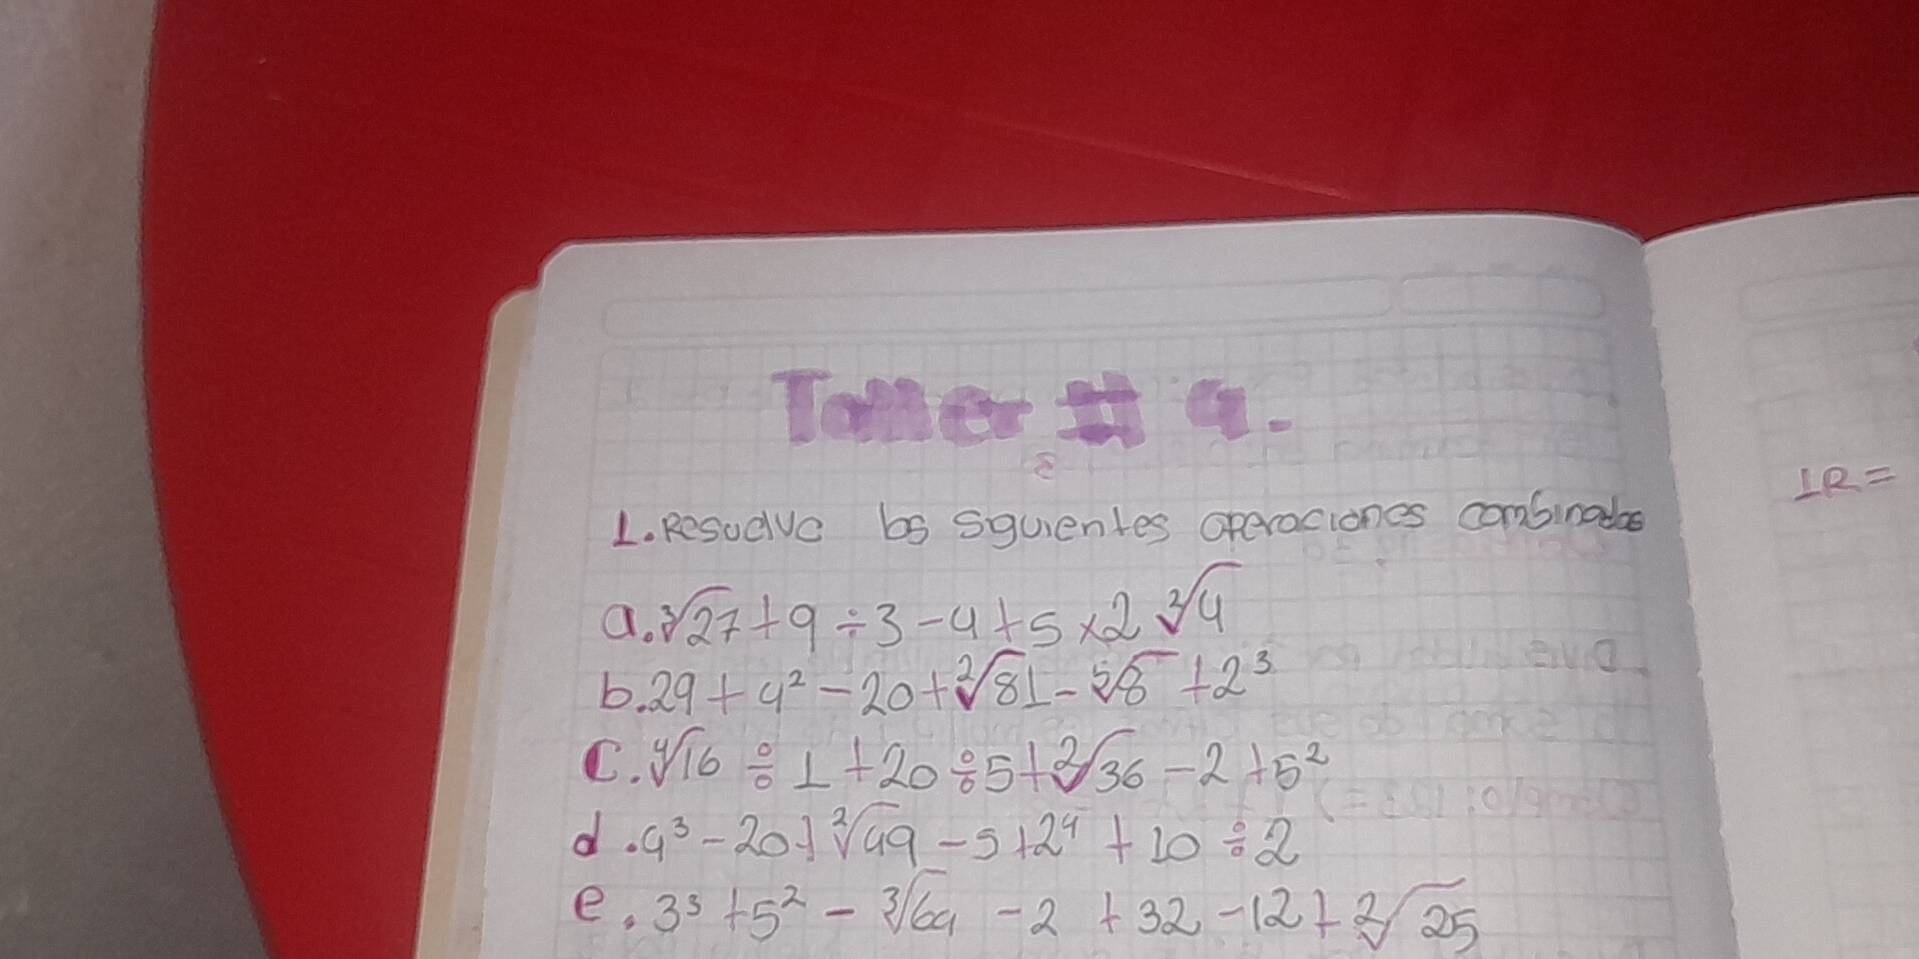 Taller # 4.
1. Resuelve los siguientes operaciones combinadas
a. ∛27 + 9 ÷ 3 - 4 + 5 × 2 ²√4
b. 29 + 4² - 20 + ²√81 - ⁵√8 + 2³
C. ⁴√16 ÷ 1 + 20 ÷ 5 + ²√36 - 2 + 5²
d. 4³ - 20 + ²√49 - 5 + 2⁴ + 10 ÷ 2
e. 3³ + 5² - ³√64 - 2 + 32 - 12 + ²√25
1R=